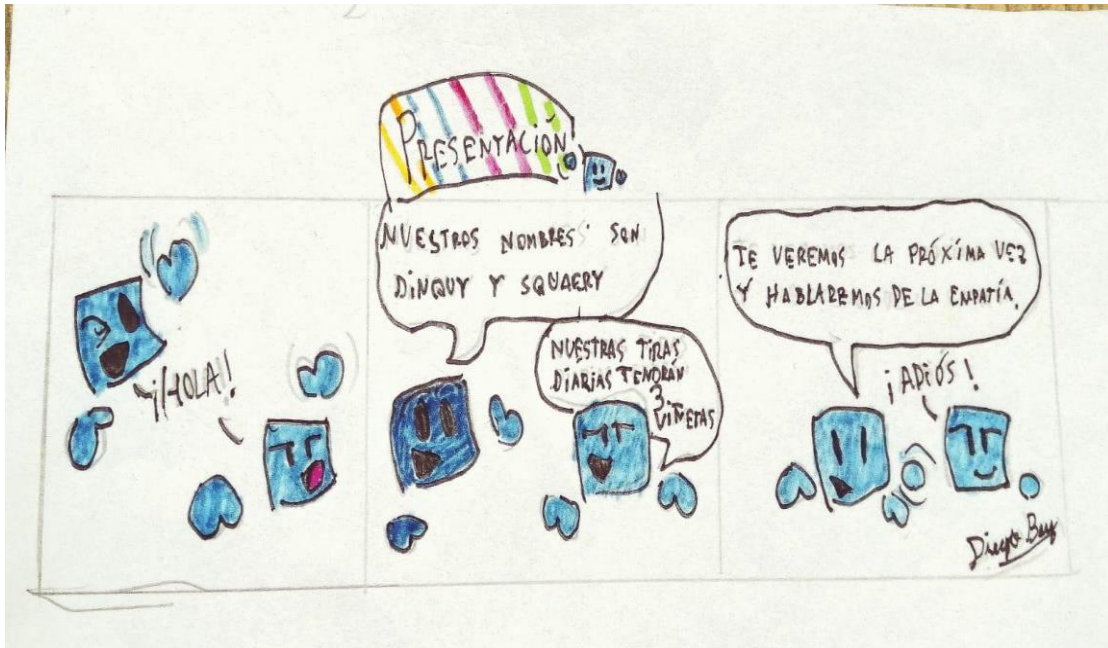 PRESENTACIÓN
¡HOLA!
NUESTROS NOMBRES SON
DINQUY Y SQUAERY
NUESTRAS TIRAS
DIARIAS TENDRÁN
3
VIÑETAS
TE VEREMOS LA PRÓXIMA VEZ
Y HABLAREMOS DE LA EMPATÍA.
¡ADIÓS!
Diego